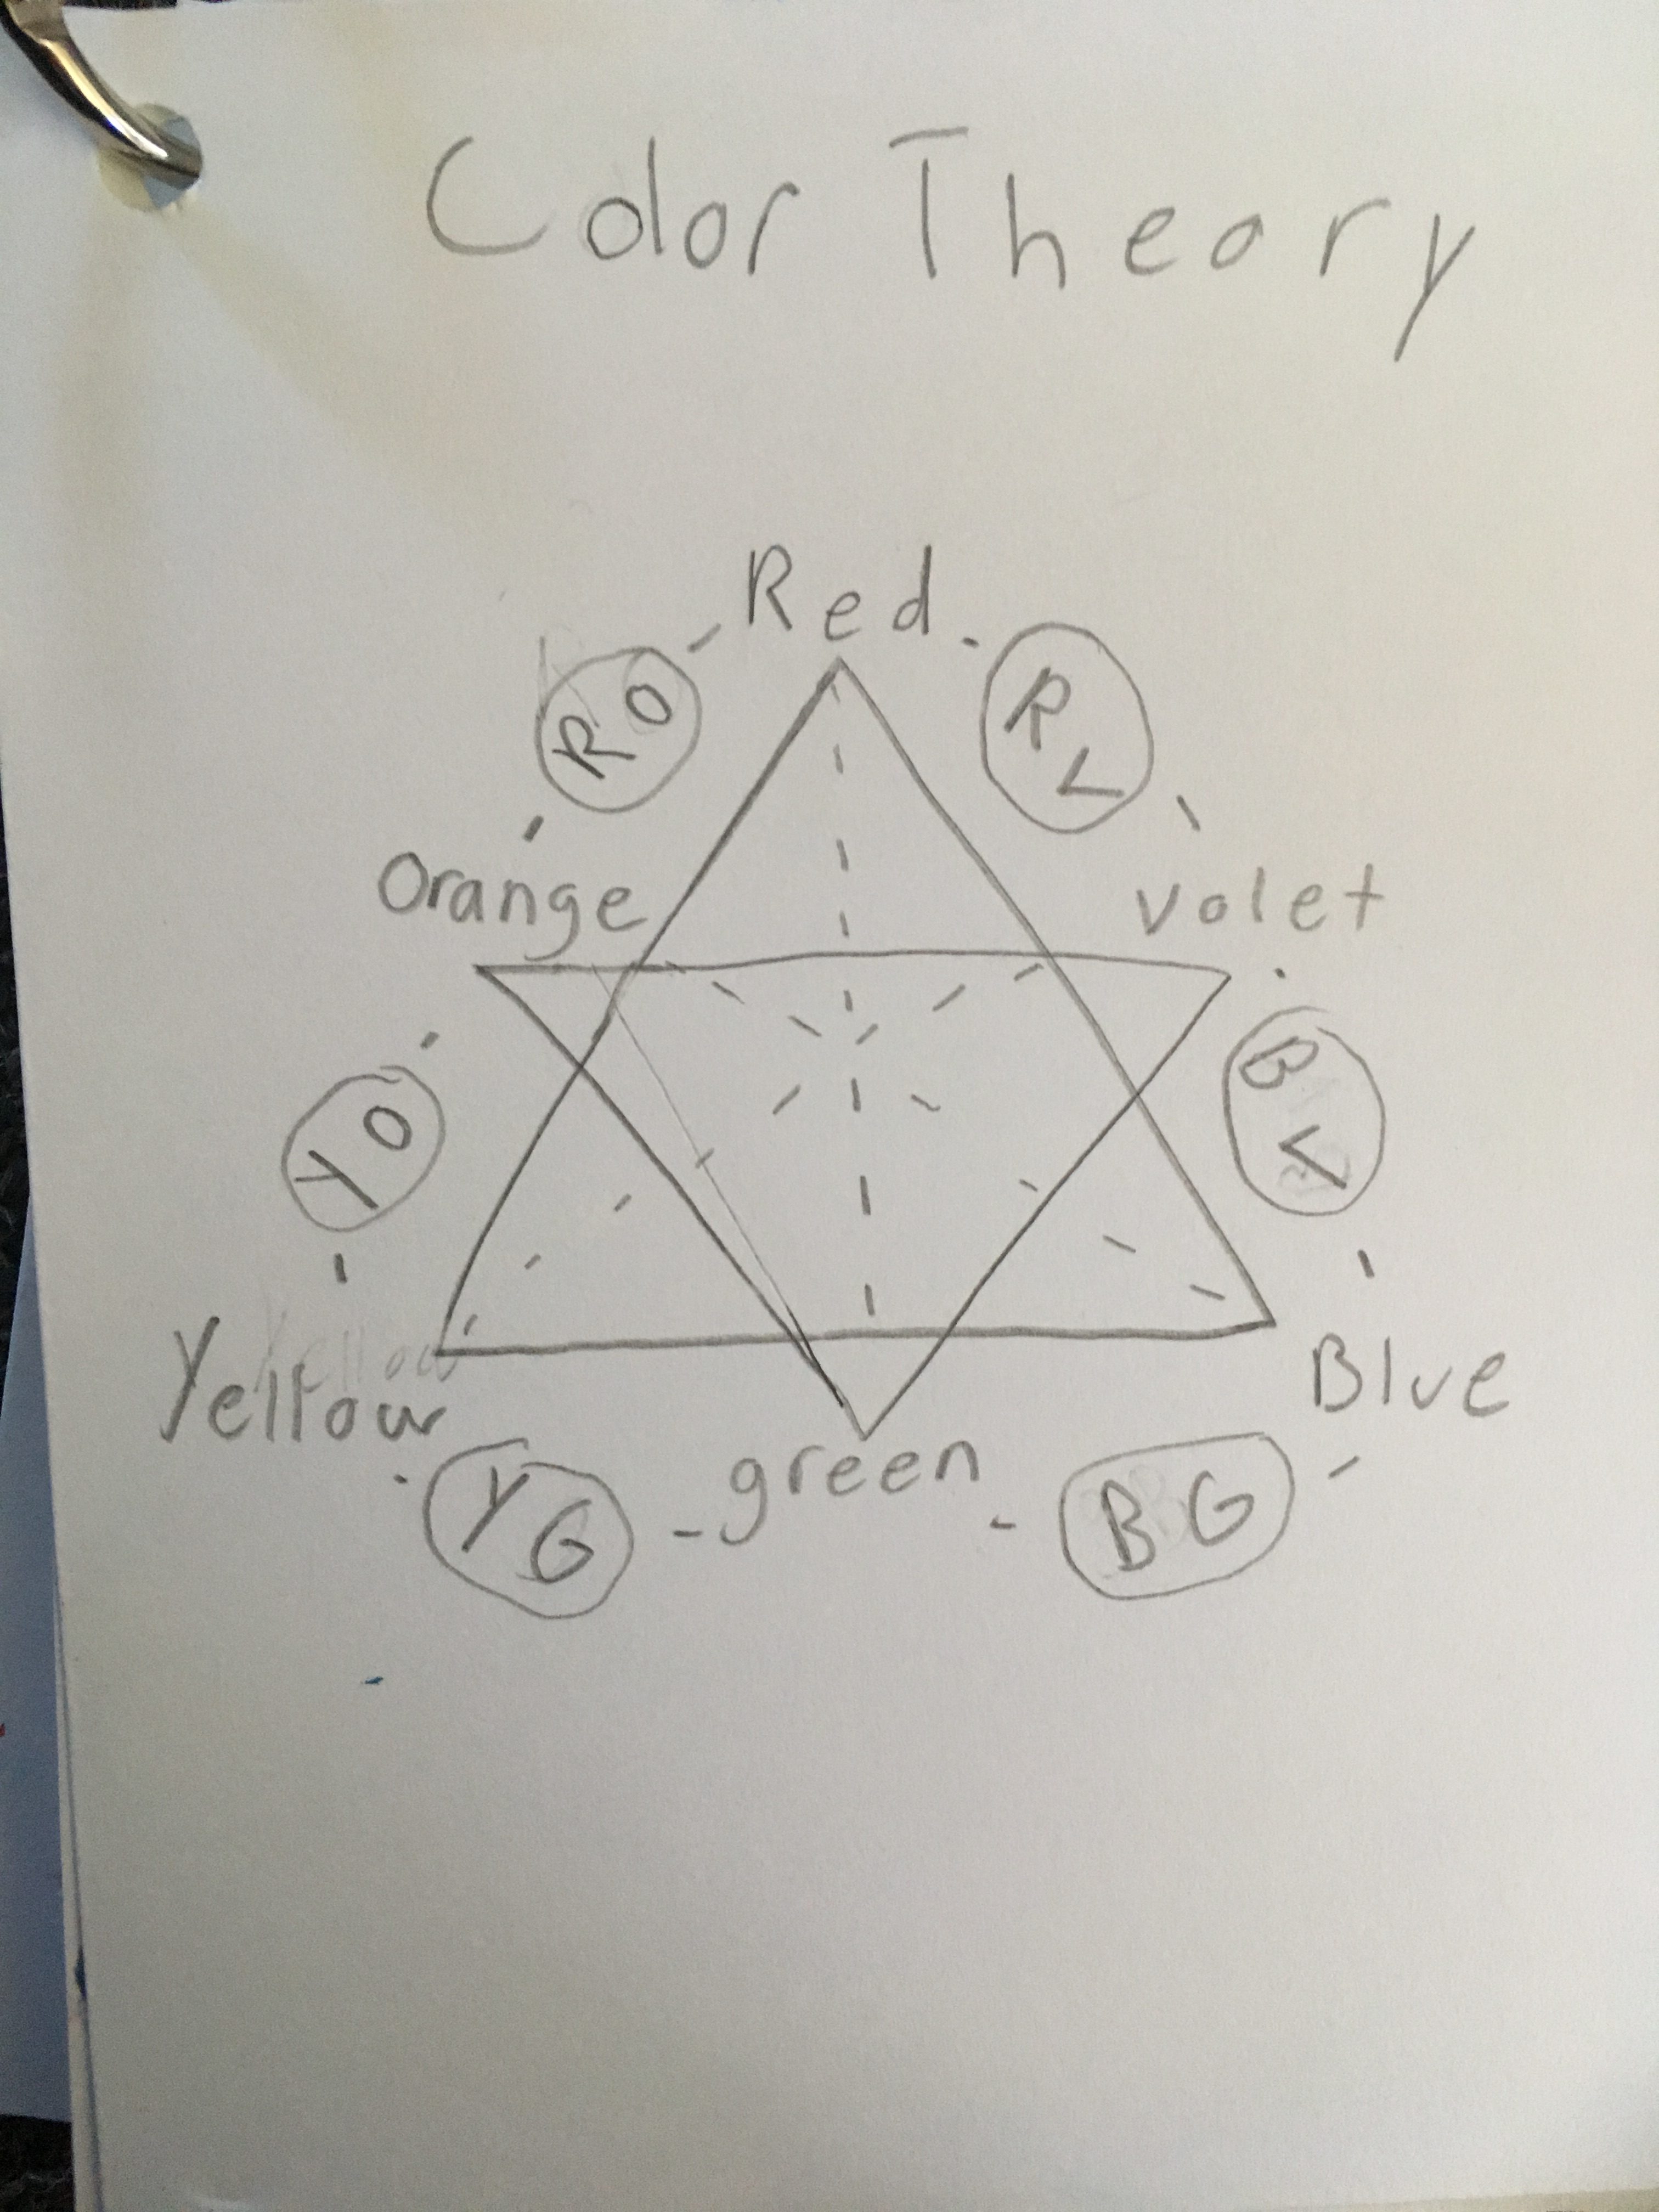 Color Theory
Red
RO
RV
Orange
volet
YO
BV
Yellow
Yellow
Blue
green
YG
BG